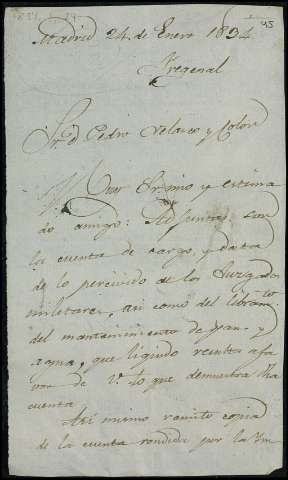 45
Madrid 24 de Enero 1834
Fregenal
Sr. D. Pedro Velasco y Colon
Muy Sr. mio y estima
do amigo: Adjuntas son
la cuenta de cargo, y data
de lo percivido de los Juzgados
militares, asi como del
del mantenimiento de pan y
agua, que liquido resulta a fa
vor de V. lo que demuestra dha
cuenta
Asi mismo remito copia
de la cuenta rendida por la